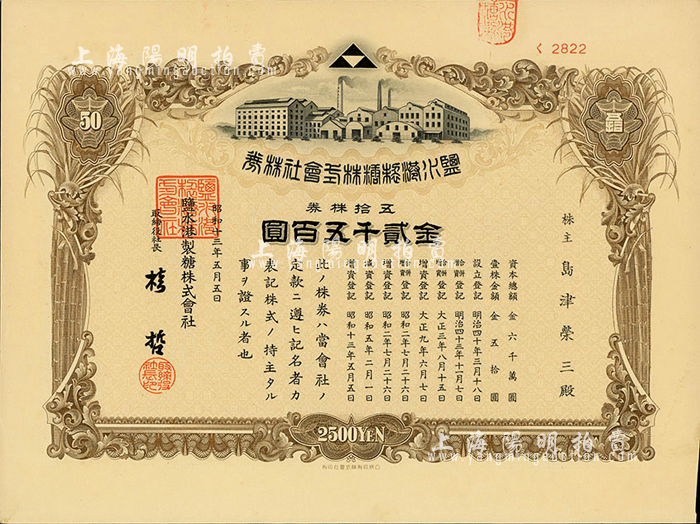 く 2822
50
五拾
鹽水港製糖株式會社株券
五拾株券
金貳千五百圓
株主 島津榮三殿
資本總額 金六千萬圓
壹株金額 金五拾圓
設立登記 明治四十年三月十八日
合併增資登記 明治四十三年十一月七日
合併增資登記 大正三年八月十五日
增資登記 大正九年六月七日
合併增資登記 昭和二年七月二十六日
增資登記 昭和二年七月二十六日
減資登記 昭和五年二月一日
增資登記 昭和十三年五月五日
此ノ株券ハ當會社ノ
定款ニ遵ヒ記名者カ
表記株式ノ持主タル
事ヲ證スル者也
昭和十三年五月五日
鹽水港製糖株式會社
取締役社長 槇哲
2500YEN
上海陽明拍賣
www.yangmingauction.com
上海陽明拍賣
www.yangmingauction.com
上海陽明拍賣
www.yangmingauction.com